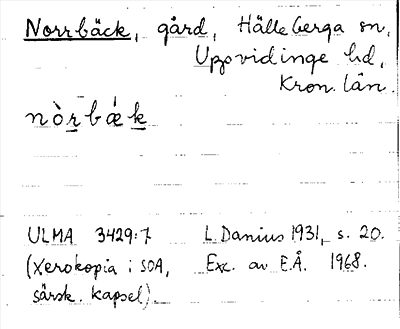 Norrbäck, gård, Hälleberga sn,
Uppvidinge hd,
Kron. län.
nòr̲bǽk̲
ULMA 3429:7 L. Danius 1931, s. 20.
(Xerokopia i SOA, Exc. av E.Å. 1968.
särsk. kapsel).